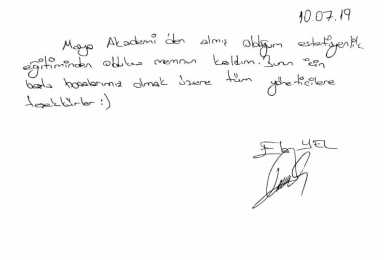 10.07.19
Maya Akademi'den almış olduğum estetisyenlik
eğitiminden oldukça memnun kaldım. Bunun için
başta hocalarımız olmak üzere tüm yöneticilere
teşekkürler :)
YEL